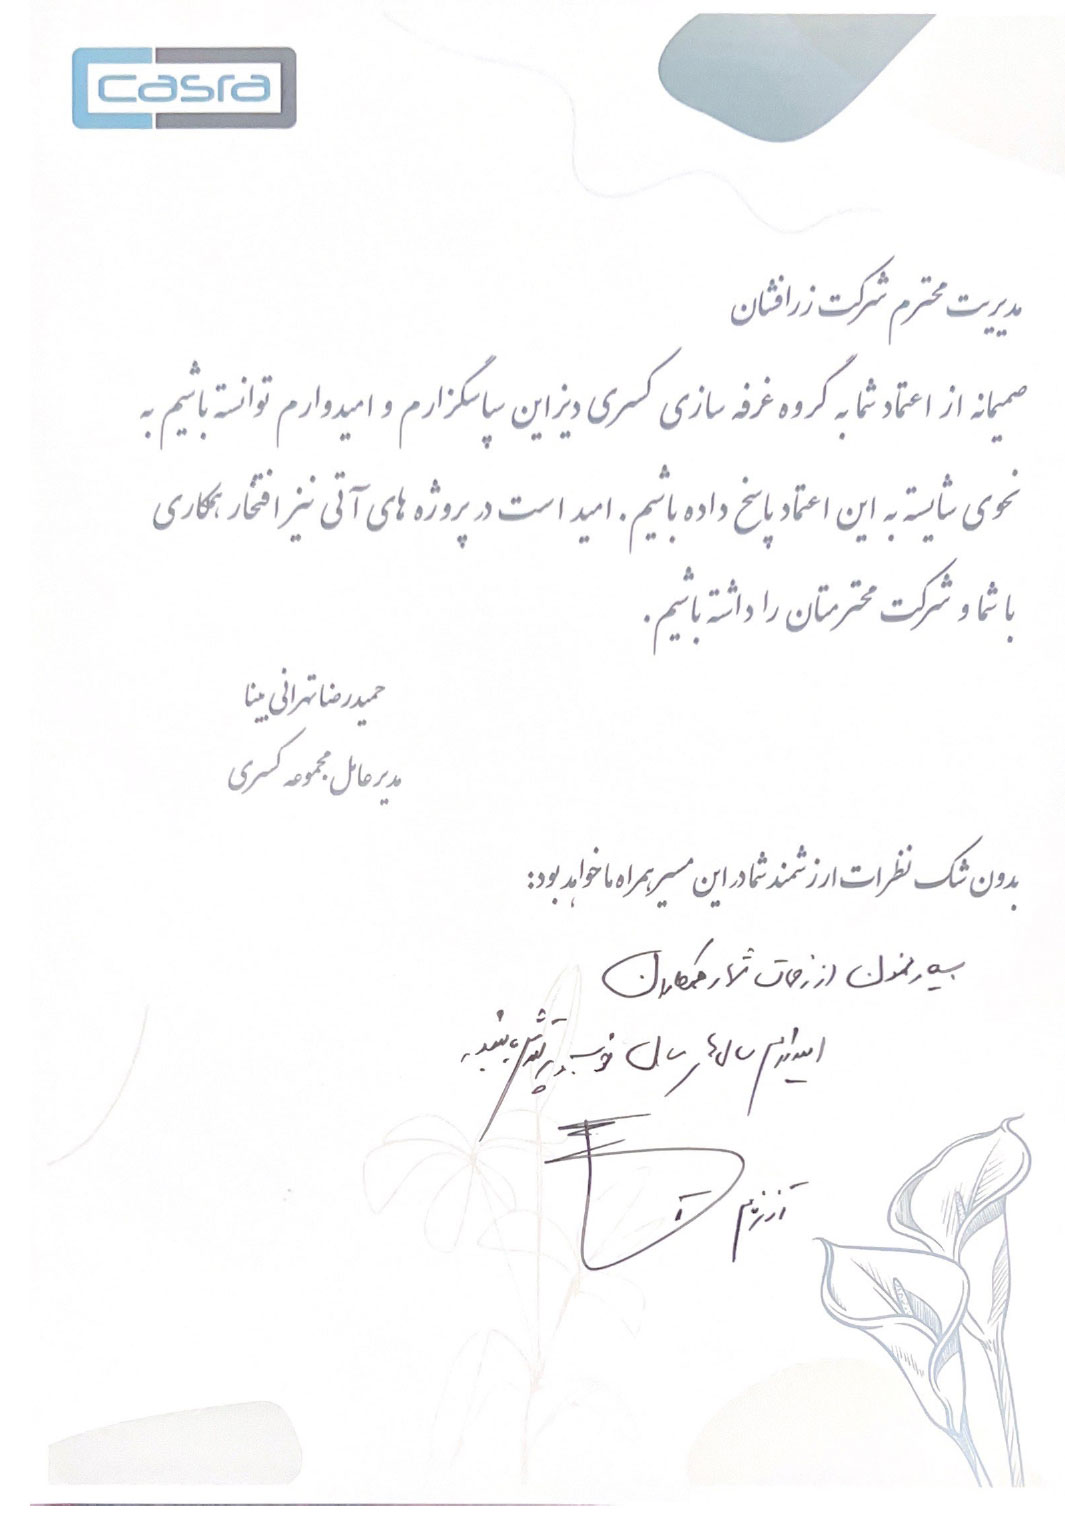 casra
مدیریت محترم شرکت زرافشان
صمیمانه از اعتماد شما به گروه غرفه سازی کسری دیزاین سپاسگزارم و امیدوارم توانسته باشیم به
نحوی شایسته به این اعتماد پاسخ داده باشیم. امید است در پروژه های آتی نیز افتخار همکاری
با شما و شرکت محترمتان را داشته باشیم.
حمیدرضا تهرانی بینا
مدیرعامل مجموعه کسری
بدون شک نظرات ارزشمند شما در این مسیر همراه ما خواهد بود:
ممنون از زحمات شما و همکاران
امیدوارم سال‌های سال باشید